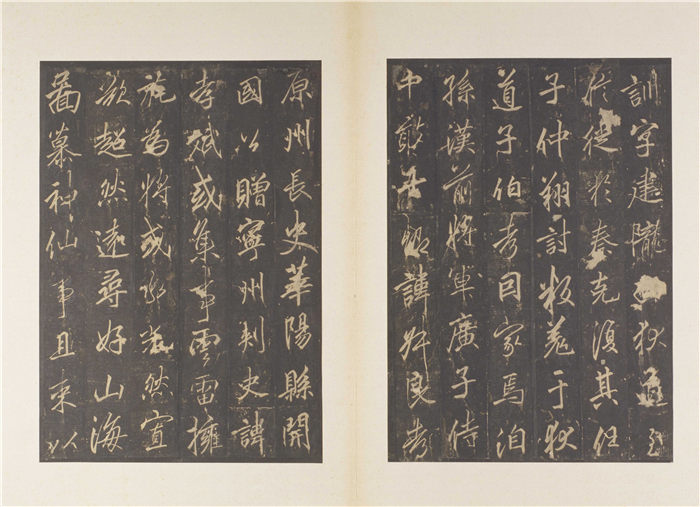 訓字建隴狄道至
於徙於秦克湏其任
子仲翔討叛羌于狄
道子伯考因家焉洎
孫漢前將軍廣子侍
中敢諱叔良考
原州長史華陽縣開
國公贈寧州刺史諱
孝斌或集事雲雷擁
旄為將或然
欲超然遠尋好山海
啚慕神仙事且束以